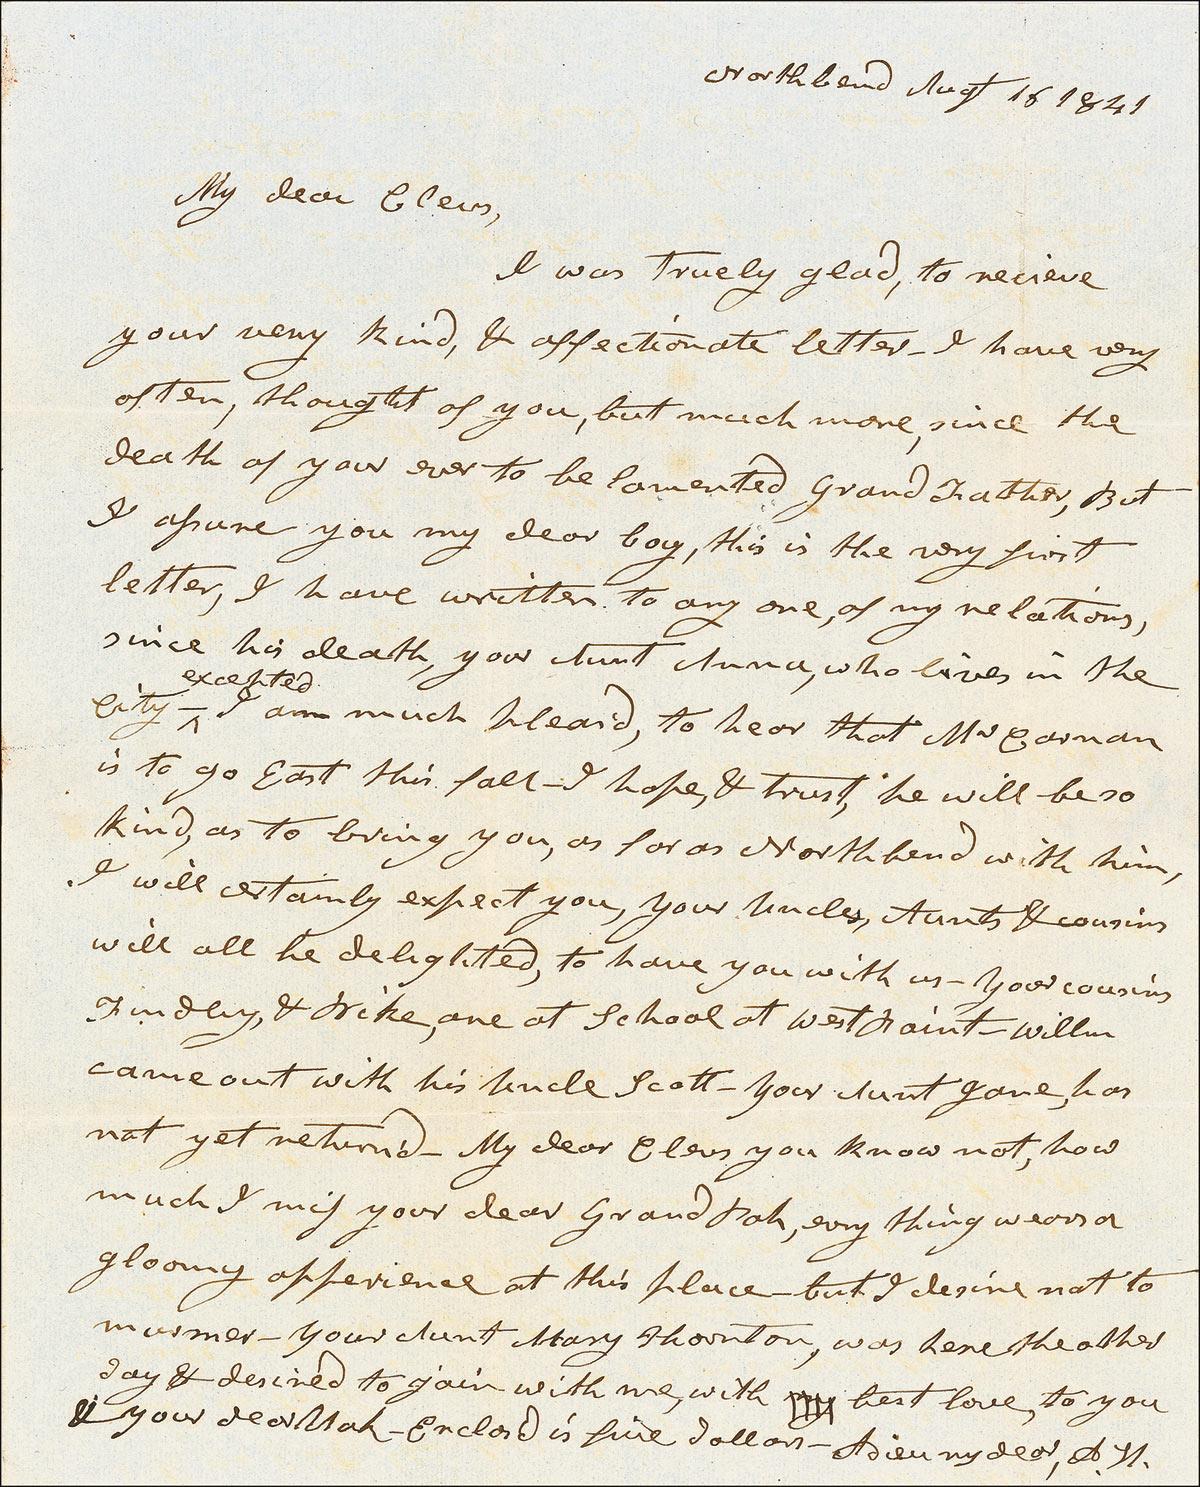 Northbend Augt 18 1841
My dear Cleves,
I was truely glad, to recieve
your very kind, & affectionate letter - I have very
often, thought of you, but much more, since the
death of your ever to be lamented Grand Father, But
I assure you my dear boy, this is the very first
letter, I have written to any one, of my relations,
since his death, your Aunt Anna, who lives in the
excepted
City - ^ I am much pleas'd, to hear that Mr
is to go East this fall - I hope, & trust, he will be so
kind, as to bring you, as far as Northbend with him,
I will certainly expect you, your Uncles, Aunts & cousins
will all be delighted, to have you with us - your cousins
Findlay, & Pike, are at School at West Point - Willm
came out with his Uncle Scott - your Aunt Jane, has
not yet return'd - My dear Cleves you know not, how
much I miss your dear Grand Pah, evry thing wears a
gloomy apperience at this place - but I desire not to
murmer - your Aunt Mary Thornton, was here the other
day & desired to join with me, with best love, to you
& your dear Mah - Enclos'd is five dollars - Adieu my dear, A. H.